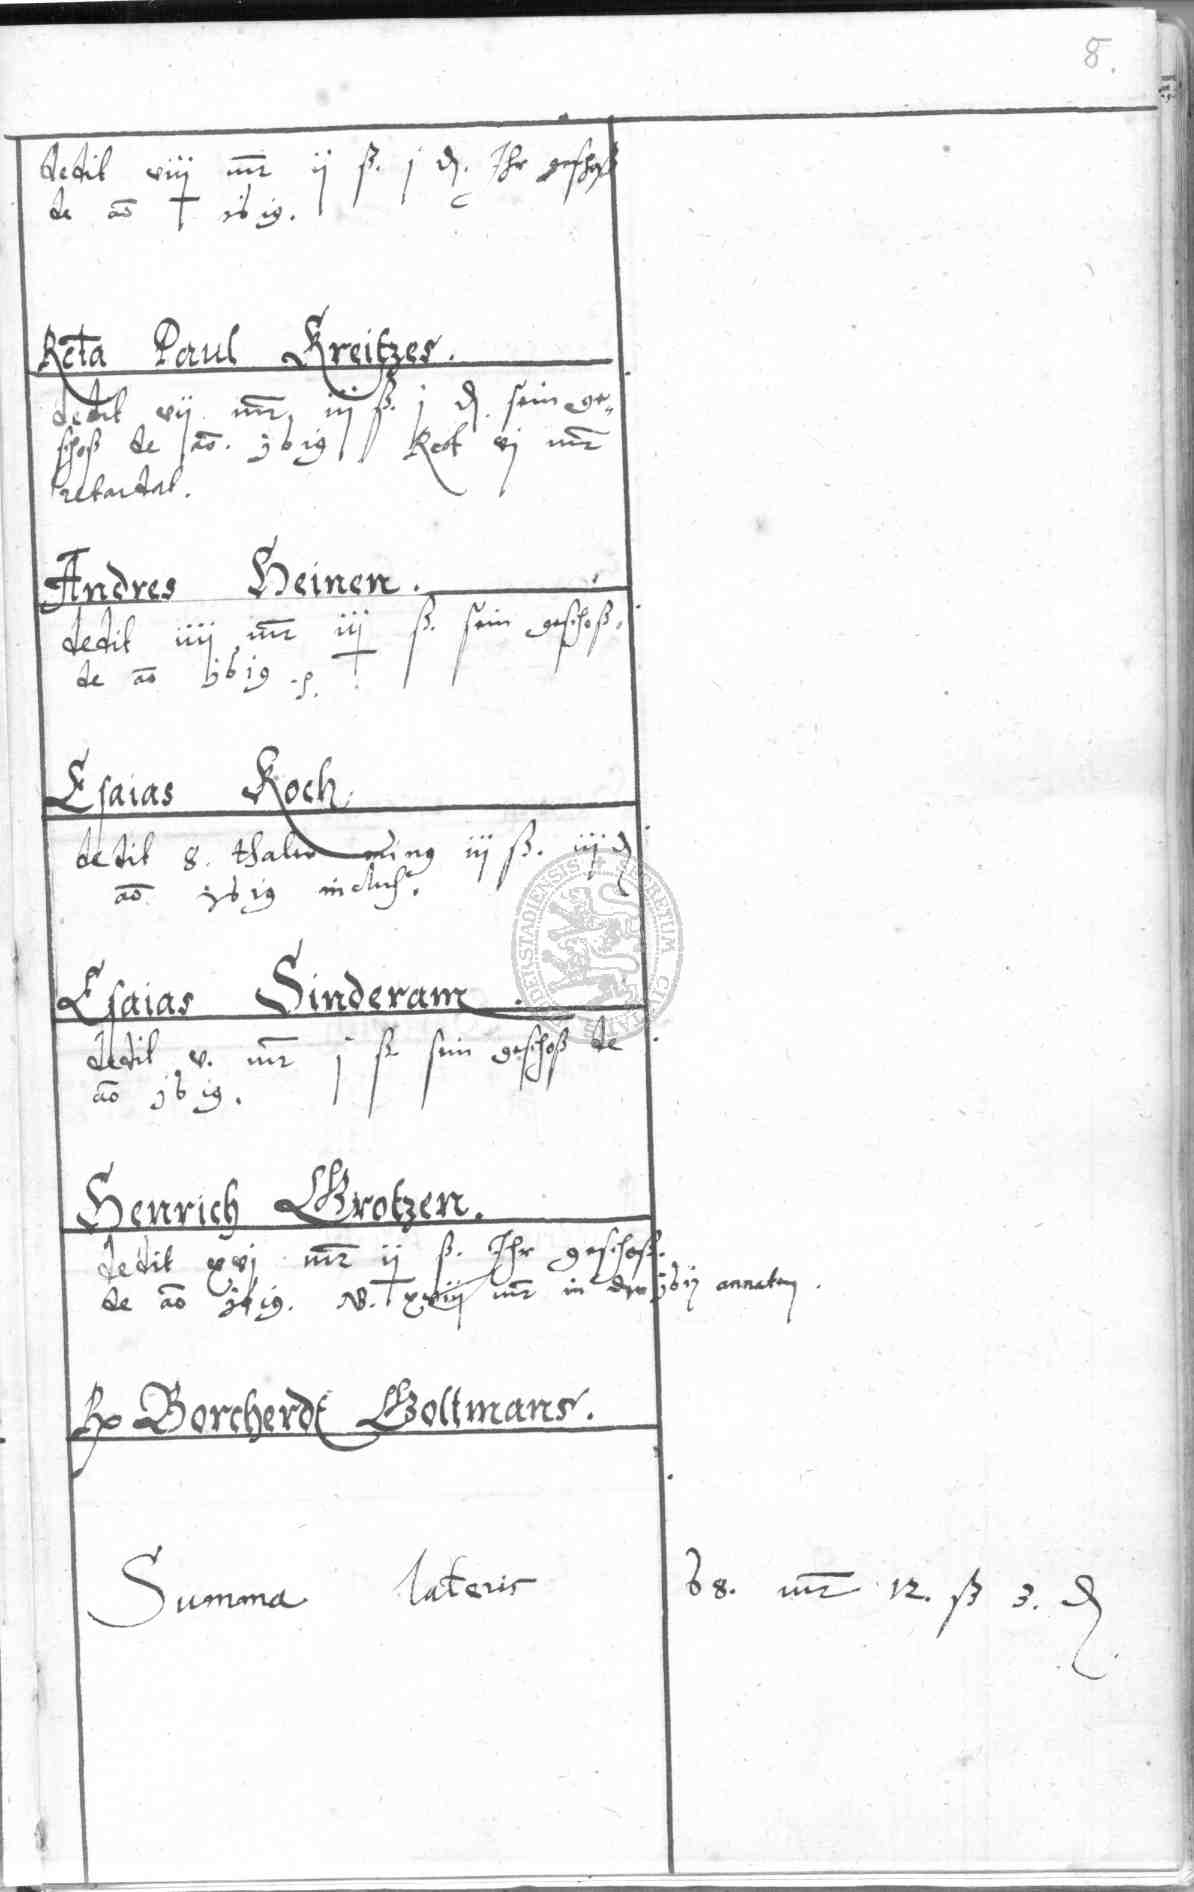 8.
dedit viij mr ij ß. j ₰. Ihr geschoß
de ao † j6i9.
Rcta Paul Kreitzes.
dedit vij mr iij ß. j ₰. sein ge-
schoß de ao. j6i9 Rest vj mr
retardat.
Andres Heinen.
dedit iiij mr iij ß. sein geschoß.
de ao j6i9
Esaias Koch
dedit 8. thaler iij ß. iiij ₰
ao j6i9 inclus.
Esaias Sinderam.
dedit v. mr j ß sein geschoß de
ao j6i9.
Henrich Grotzen.
dedit xvj mr ij ß. Ihr geschoß.
de ao j6i9. NB. xviij mr in den annaten.
Borcherdt Goltmans.
Summa lateris 68. mr 12. ß 3. ₰
SECRETUM CIVITATIS DUDERSTADIENSIS